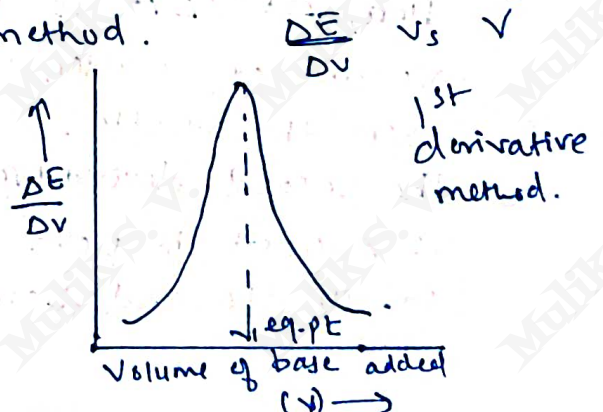 method.
ΔE/ΔV vs V
1st
derivative
method.
ΔE/ΔV
eq.pt
Volume of base added
(V) →
Mulik S. V.